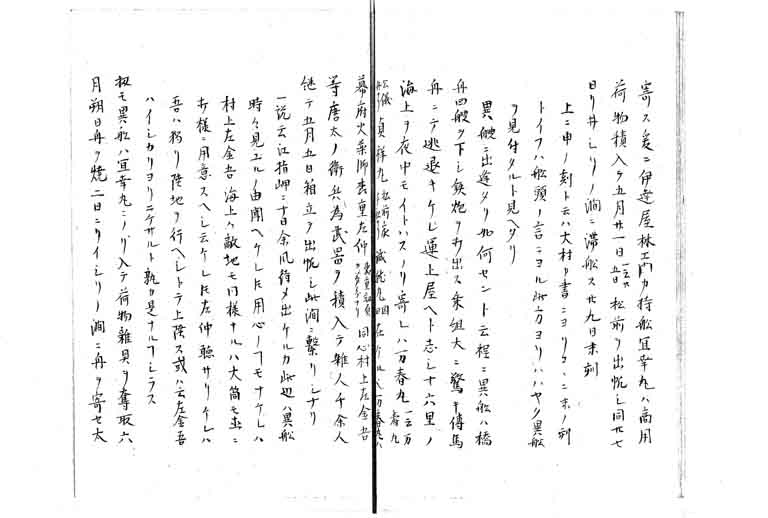 寄ス爰ニ伊達屋林エ門カ持船宜幸丸ハ商用
荷物積入テ五月廿一日 一云五日 松前ヲ出帆シ同廿七
日リ井シリノ澗ニ滞船ス廿九日未刻
上ニ申ノ刻ト云ハ大村カ書ニヨリココニ未ノ刻
トイフハ船頭ノ言ニヨル此方ヨリハハヤク異船
ヲ見付タルト見ヘタリ
異船ニ出逢タリ如何セント云程ニ異船ハ橋
舟四艘ヲ下シ鉄炮ヲ打出ス乗組大ニ驚キ傳馬
舟ニテ逃退キケレ運上屋ヘト志シ十六里ノ
海上ヲ夜中モイトハスノリ寄シハ万春丸 一云万春丸
貞祥丸 誠龍丸 在ケル
幕府火薬師 重左仲 同心村上左金吾
等唐太ノ衛兵為武器ヲ積入テ雑人千余人
継テ五月五日箱立ヲ出帆シ此澗ニ繋リシナリ
一説云江指岬ニ十日余風待メ出ケルカ此辺ハ異船
時々見エルノ由聞ヘケレ圧用心ノフモナケレハ
村上左金吾海上ハ敵地モ同様ナルハ大筒モ並ニ
打様ニ用意スヘシ云ケレ圧左仲聴サリケレハ
吾ハ独リ陸地ヲ行ヘシトテ上陸ス或ハ云左金吾
ハイシカリヨリニケサルト孰カ是ナルフシラス
扨モ異船ハ宜幸丸ニノリ入テ荷物雑具ヲ奪取六
月朔日舟ヲ焼二日ニリイシリノ澗ニ舟ヲ寄セ大